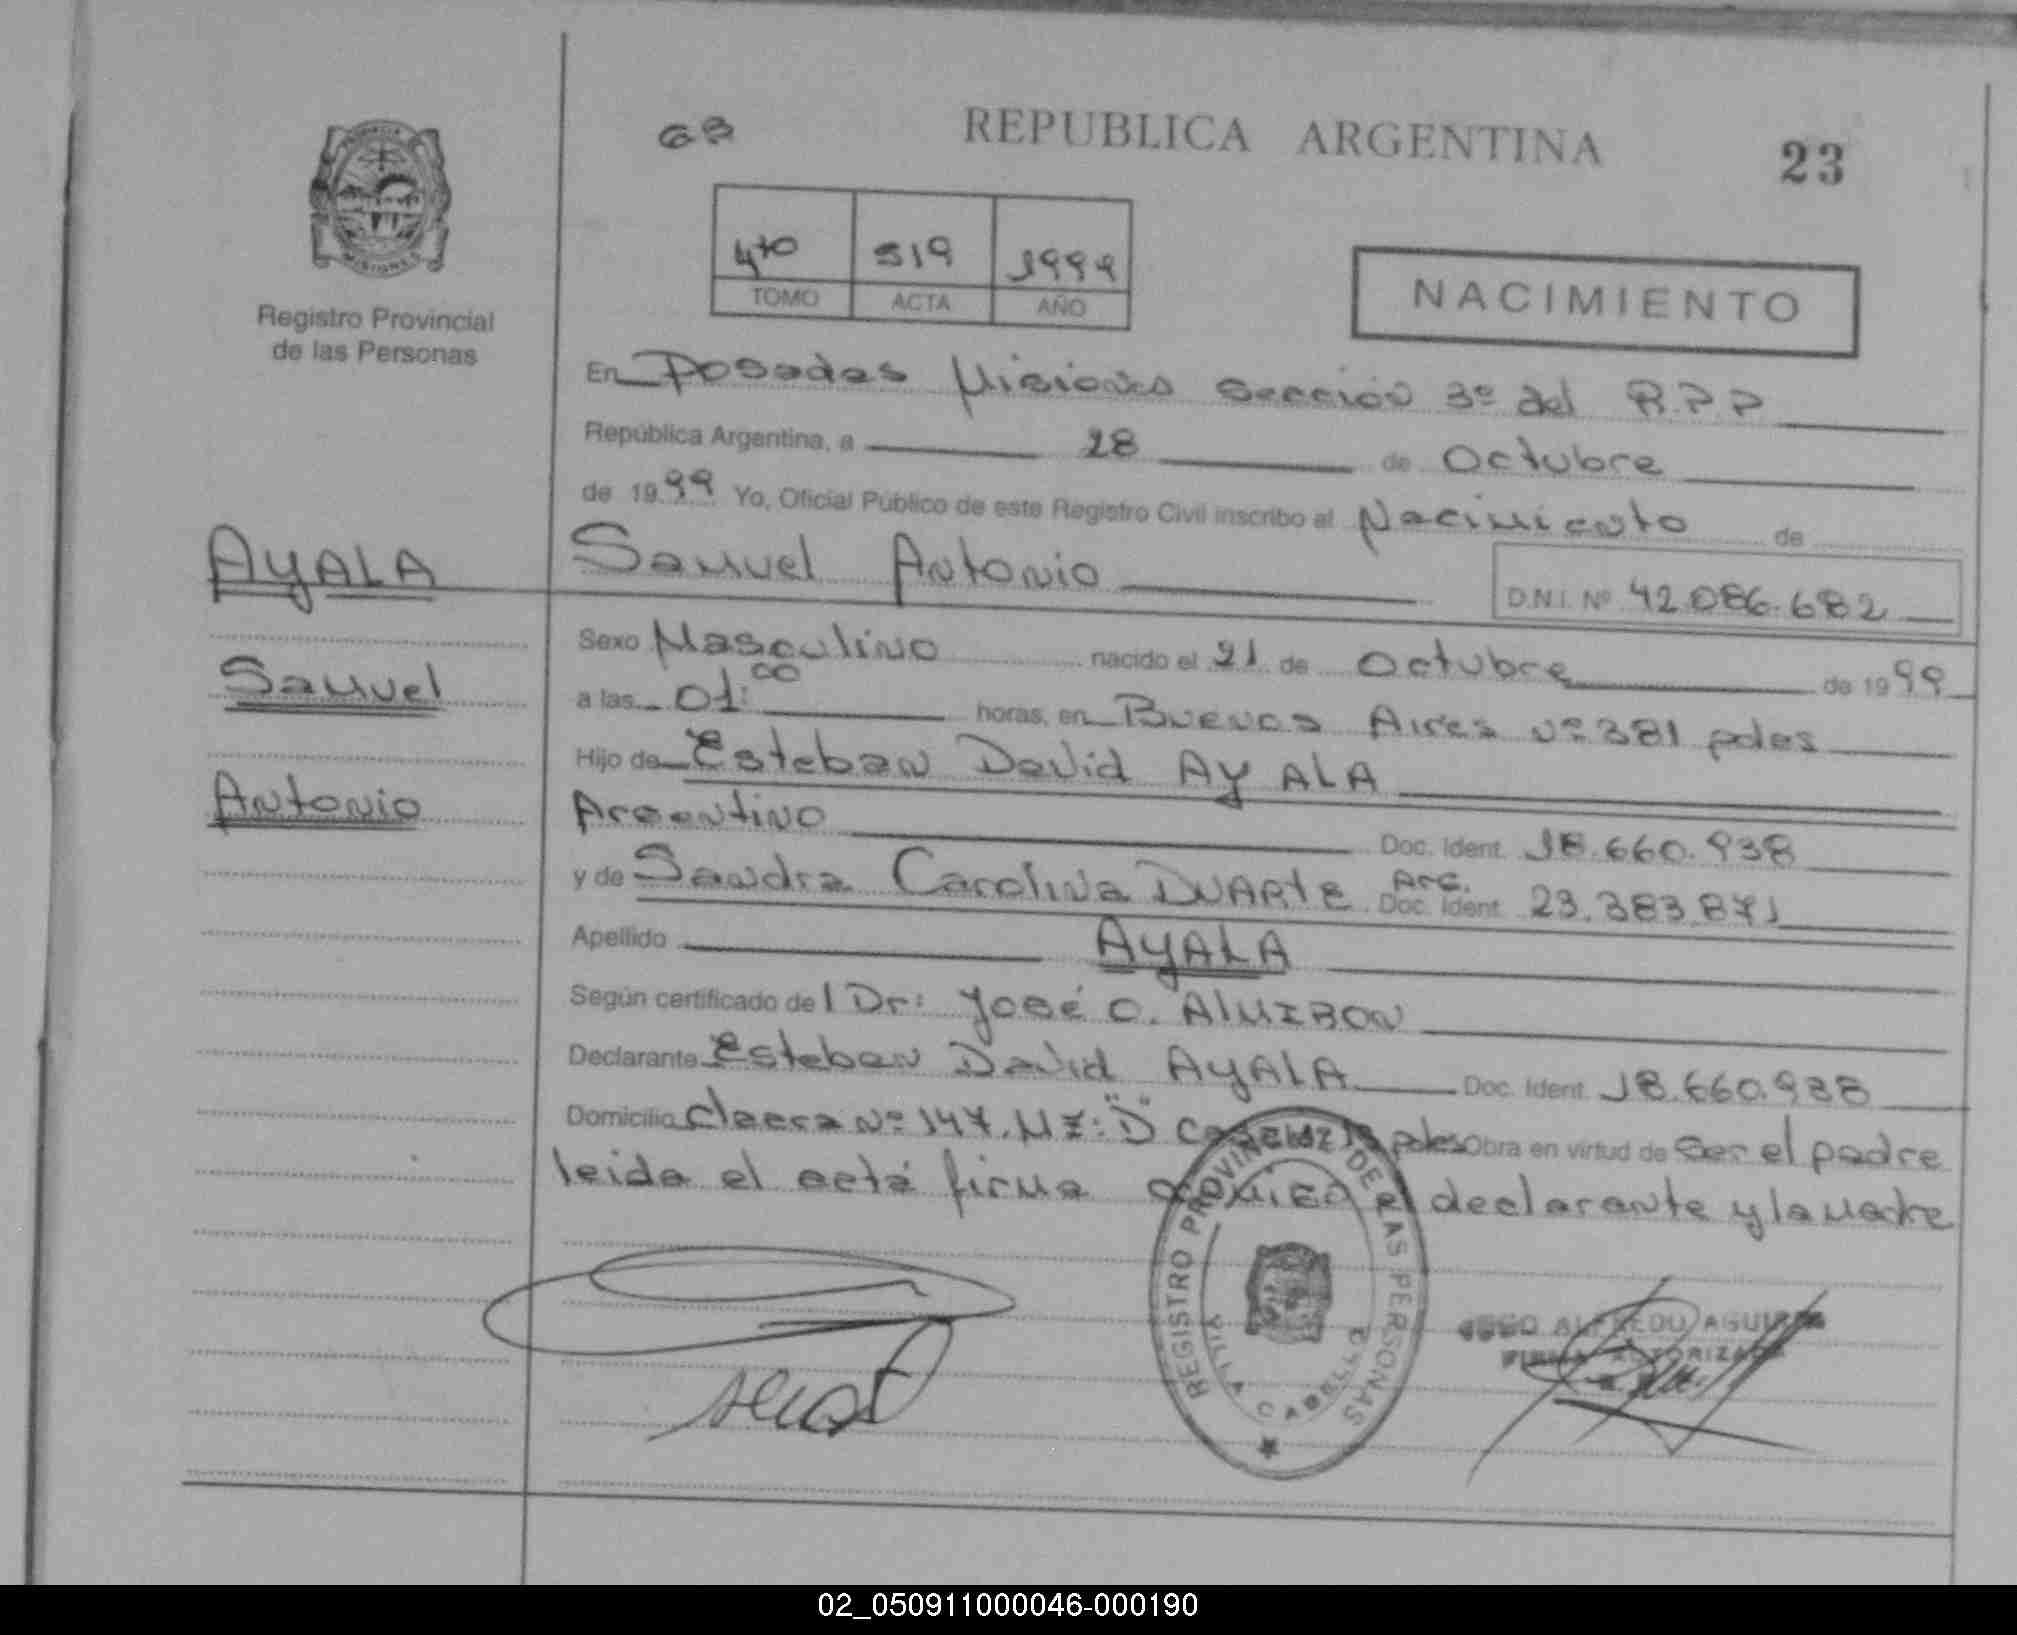 GB
REPUBLICA ARGENTINA
23
MISIONES
Registro Provincial
de las Personas
4to 519 1999
TOMO ACTA AÑO
NACIMIENTO
En Posadas Misiones sección 3º del R.P.P
República Argentina, a 28 de Octubre
de 1999 Yo, Oficial Público de este Registro Civil inscribo al Nacimiento de
AYALA Samuel Antonio
D.N.I. Nº 42.086.682
Sexo Masculino nacido el 21 de Octubre de 1999
Samuel
a las 01:00 horas, en Buenos Aires Nº 381 pdas
Hijo de Esteban David AYALA
Antonio
Argentino Doc. Ident. 18.660.938
y de Sandra Carolina DUARTE Arg. Doc. Ident. 23.383.871
Apellido AYALA
Según certificado del Dr: José O. AlMIRON
Declarante Esteban David AYALA Doc. Ident. 18.660.938
Domicilio Nº 147. MZ: "D" pdas Obra en virtud de ser el padre
leida el acta firma el declarante y la madre
REGISTRO PROVINCIAL DE LAS PERSONAS
VILLA CABELLO
ALFREDO AGUIRRE
FIRMA AUTORIZADA
02_050911000046-000190